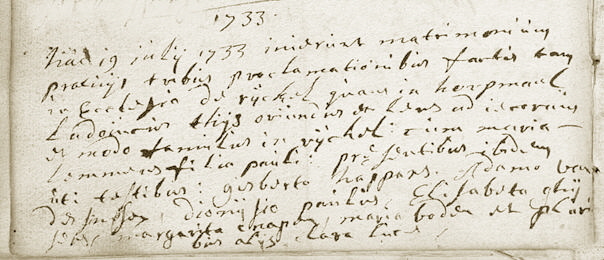 1733
hac 19 july 1733 inierunt matrimonium
praevijs tribus proclamationibus factis tam
in Ecclesia de ryckel quam in horpmael
Ludovicus thijs oriundus ex Lens ad
et modo famulus in ryckel cum maria
Lemmens filia pauli: presentibus ibidem
uti testibus: gesberto happars. Adamo van
dionysio paulus, Elisabeta thijs
margarita Knapen, maria boden et pluri
bus alijs. clara Luc